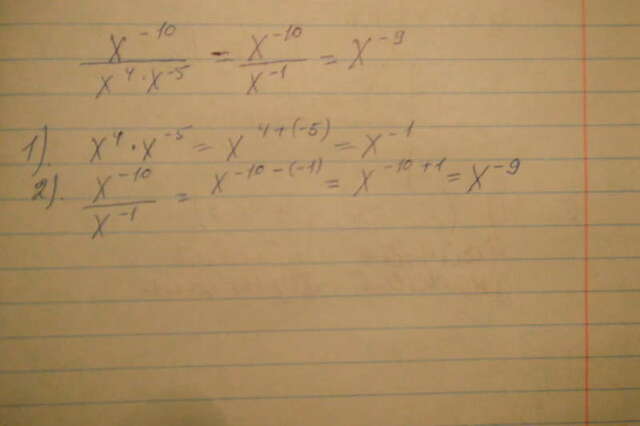 x⁻¹⁰ / (x⁴ · x⁻⁵) = x⁻¹⁰ / x⁻¹ = x⁻⁹
1). x⁴ · x⁻⁵ = x⁴⁺⁽⁻⁵⁾ = x⁻¹
2). x⁻¹⁰ / x⁻¹ = x⁻¹⁰⁻⁽⁻¹⁾ = x⁻¹⁰⁺¹ = x⁻⁹